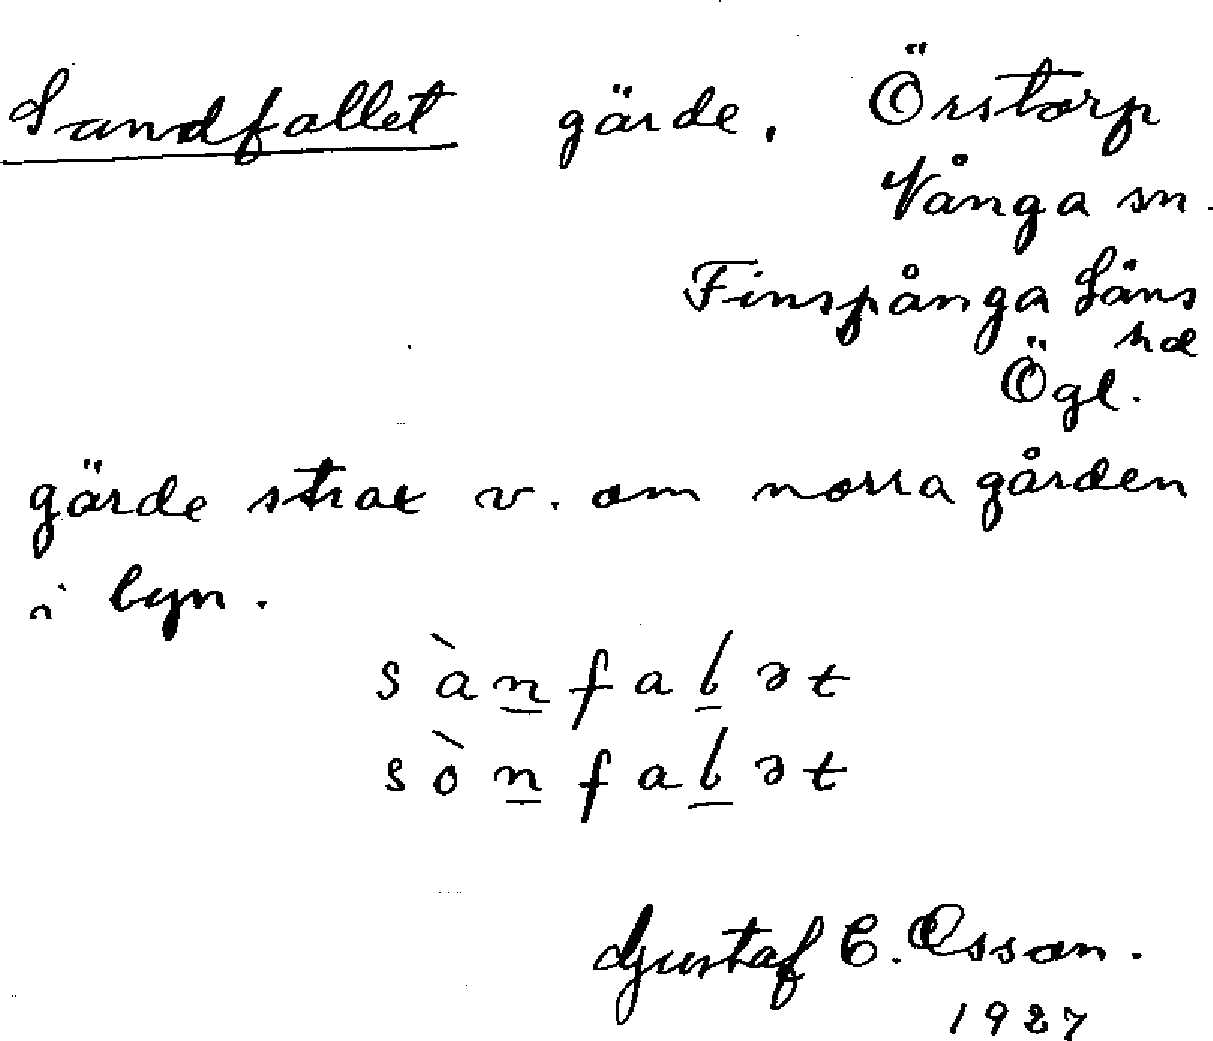 Sandfallet gärde. Örstorp
Vånga sn.
Finspånga Läns
hd
Ögl.
gärde strax v. om norra gården
i byn.
sànfalət
sònfalət
Gustaf E. Osson.
1927